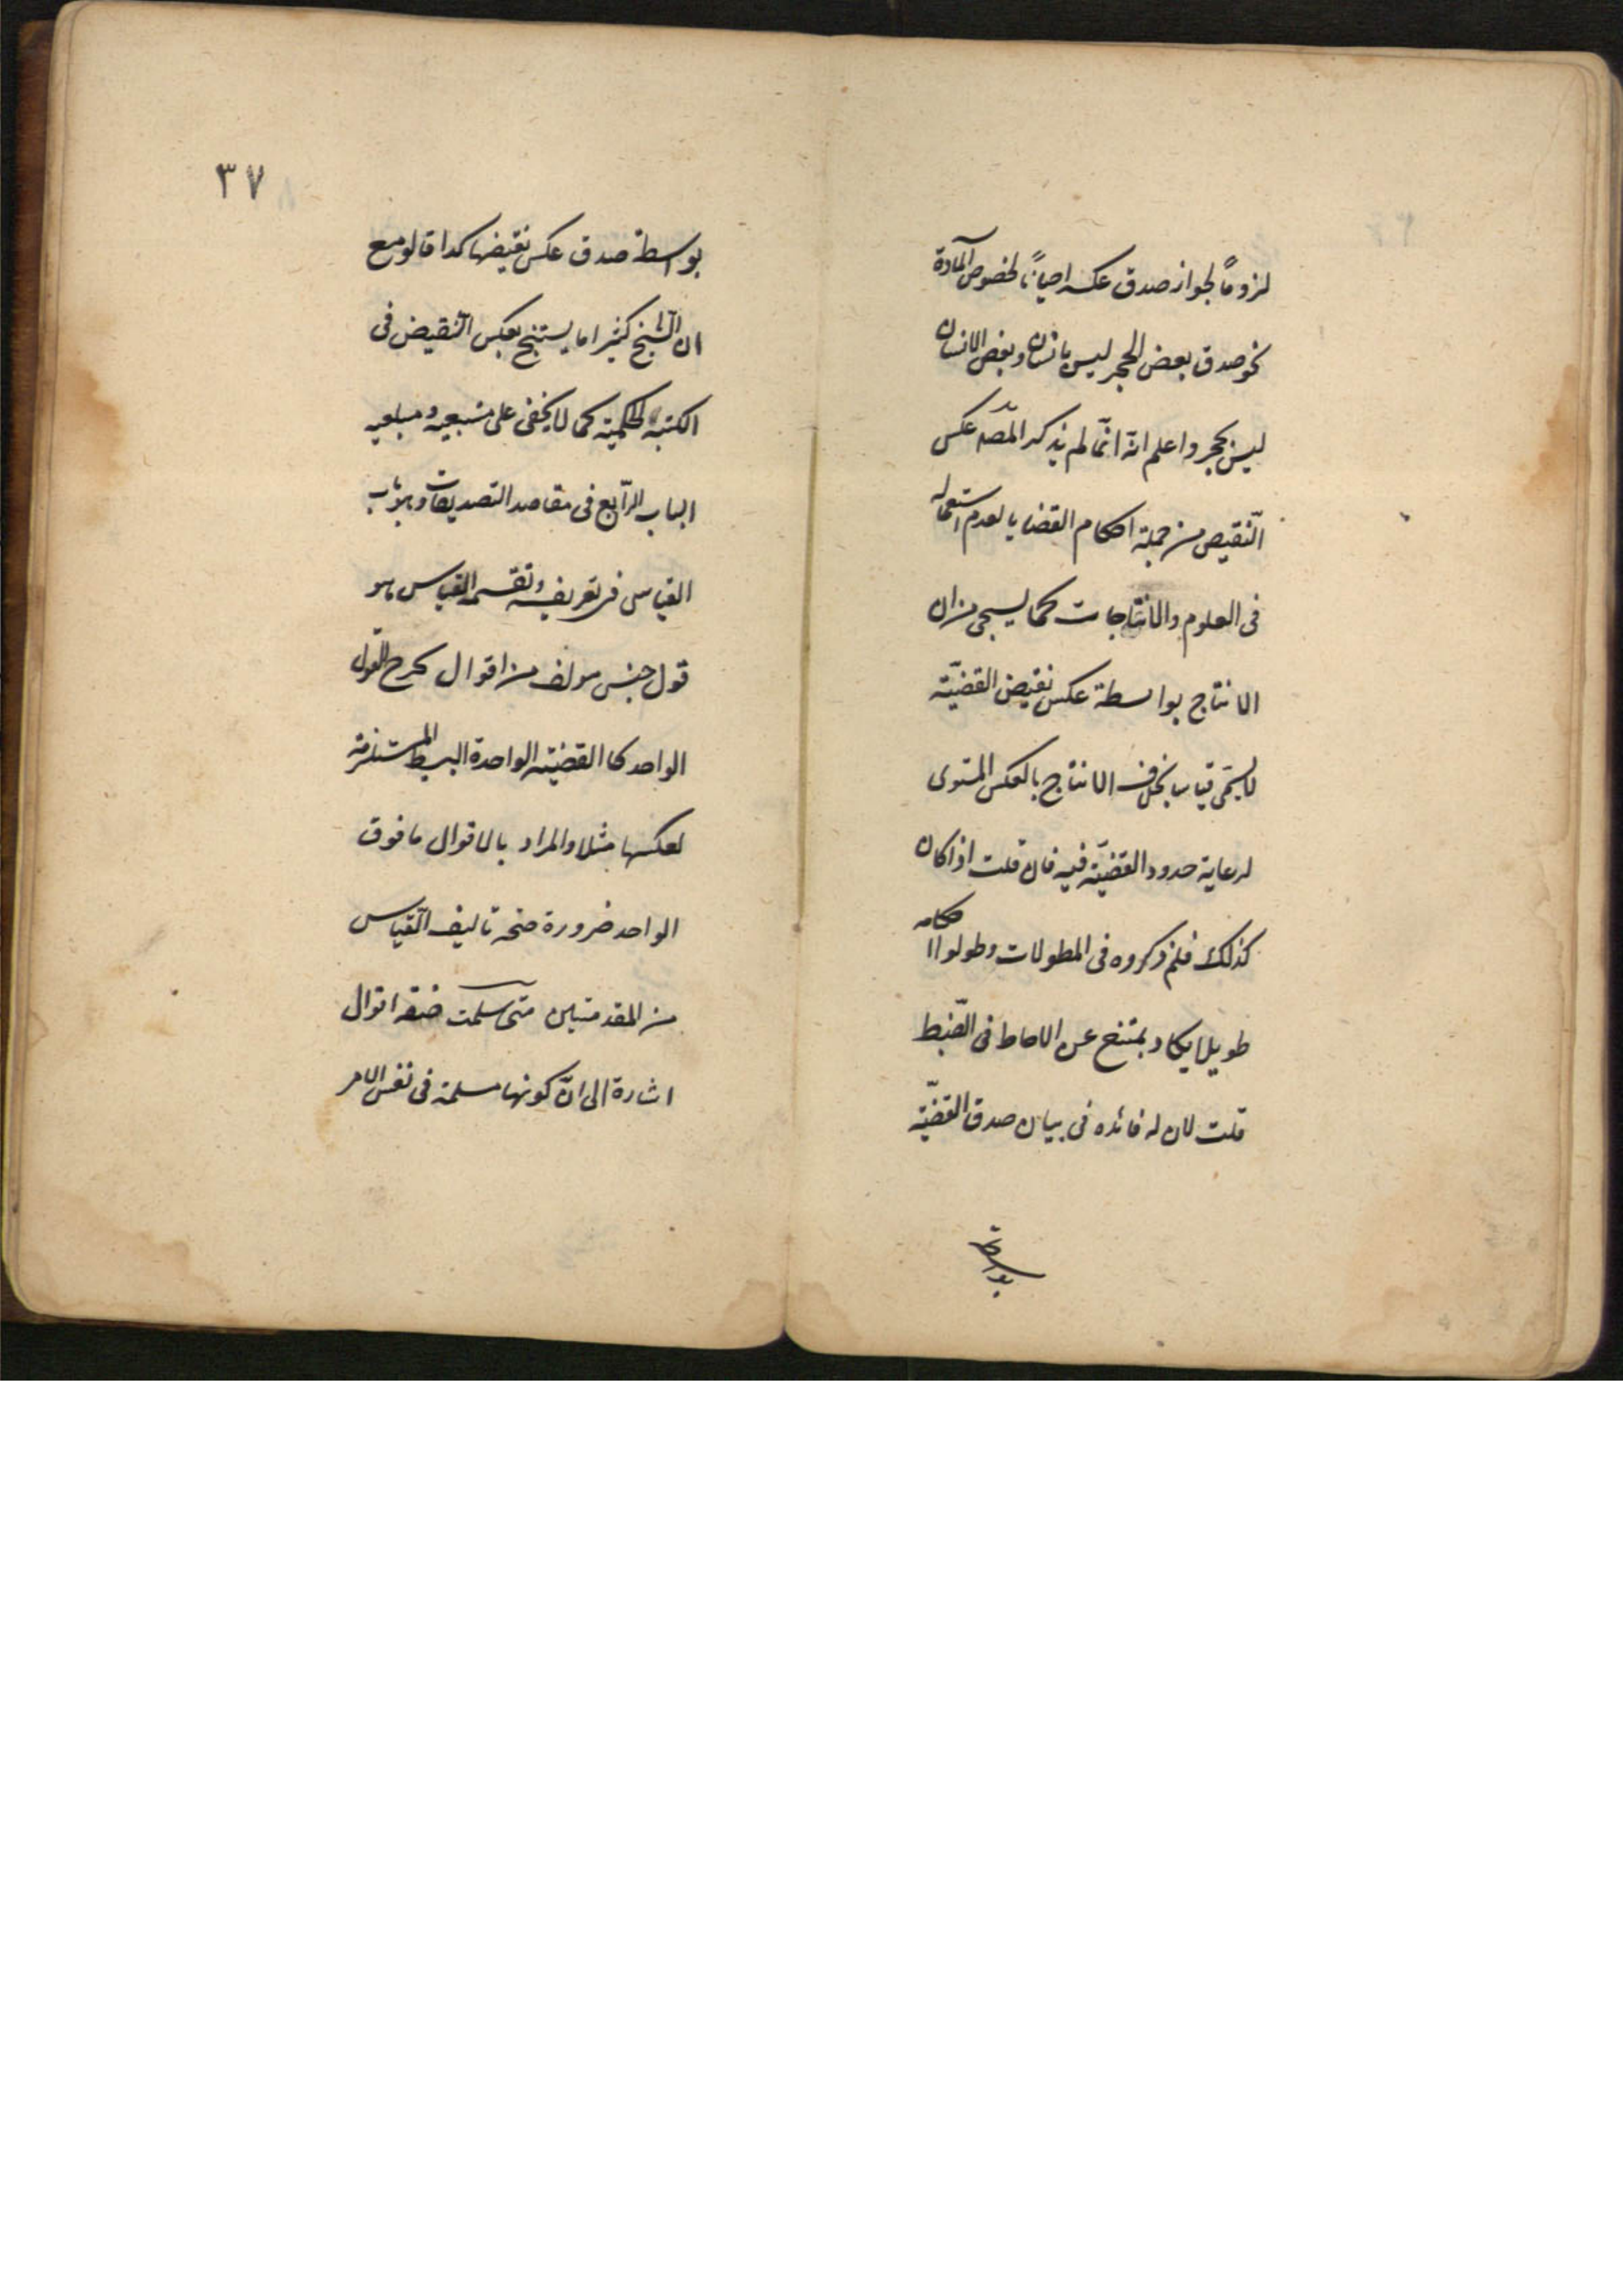 لزوماً لجواز صدق عكسه احياناً لخصوص المّادة
نحو صدق بعض الحجر ليس بانسان وبعض الانسان
ليس بحجر واعلم انّه انّما لم يذكر المّصه عكس
النّقيض من جملة احكام القضايا لعدم استعماله
فى العلوم والانتاجات كما سيجى من ان
الانتاج بواسطة عكس نقيض القضيّة
لا يسمّى قياسا بخلاف الانتاج بالعكس المستوى
لرعاية حدود القضيّة فيه فان قلت اذا كان
كذلك فلم ذكروه فى المطولات وطولوا احكامه
طويلا يكاد يمتنع عن الاحاط فى الضّبط
قلت لان له فائده فى بيان صدق القضيّة
بواسطة
٣٧
بواسطة صدق عكس نقيضها كدا قالو مع
ان الشّيخ كثيرا ما يستنتج بعكس النّقيض فى
الكتبه الحكمية كما لا يخفى على متتبعيه و
الباب الرّابع فى مقاصد التصديقات وهو باب
القياس فى تعريفه وتقسيمه القياس هو
قول جنس مولف من اقوال يخرج القول
الواحد كا القضيّته الواحدة البسيط المستلزمة
لعكسها مثلا والمراد بالاقوال ما فوق
الواحد ضرورة صحة تاليف القّياس
من المقدمتين متى سلمت صفة اقوال
اشارة الى انّ كونها مسلمة فى نفس الامر